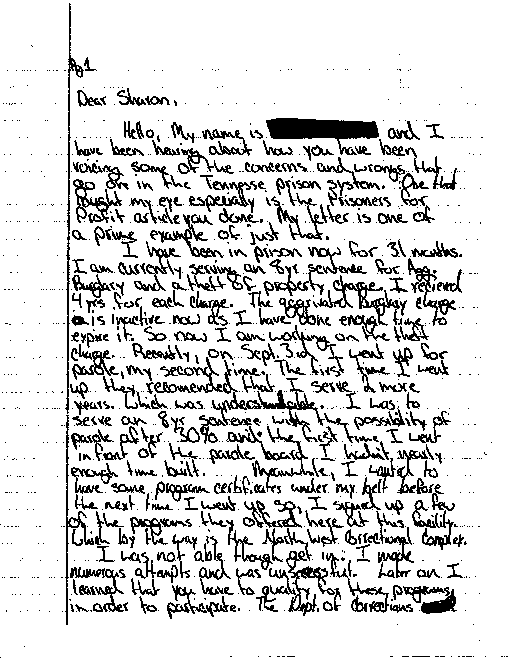 Pg 1
Dear Sharon,
Hello, My name is and I
have been hearing about how you have been
voicing some of the concerns and wrongs that
go on in the Tennesse prison system. One that
cought my eye especially is the Prisoners for
Profit article you done. My letter is one of
a prime example of just that.
I have been in prison now for 31 months.
I am currently serving an 8yr sentence for Agg.
Burglary and a theft of property charge. I recieved
4 yrs for each charge. The aggrivated Burglary charge
is inactive now as I have done enough time to
expire it. So now I am working on the theft
charge. Recently, on Sept. 3rd, I went up for
parole, my second time. The first time I went
up they recomended that I serve 2 more
years. Which was understandable. I was to
serve an 8yr sentence with the possibility of
parole after 30% and the first time I went
infront of the parole board I hadn't nearly
enough time built. Meanwhile, I wanted to
have some program certificates under my belt before
the next time I went up so, I signed up a few
of the programs they offered here at this facility.
Which by the way is the North West Correctional Complex.
I was not able though get in. I made
numerous attempts and was unsuccessful. Later on I
learned that you have to qualify for these programs
in order to participate. The Dept. of Corrections